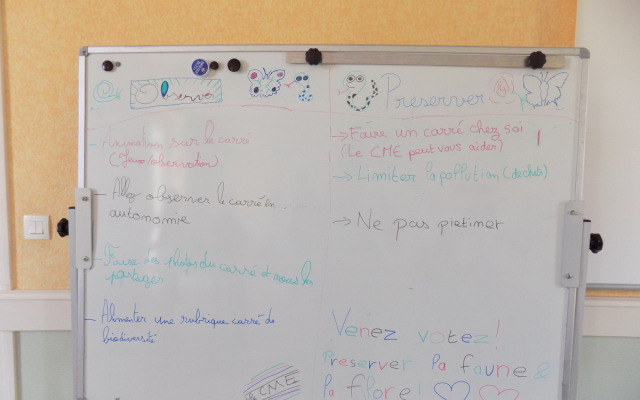 Observer
Animation sur le carré
(Jeux/observation)
Allez observer le carré en
autonomie
Faire des photos du carré et nous les
partager
Alimenter une rubrique carré de
biodiversité
CME
Preserver
Faire un carré chez soi
(Le CME peut vous aider)
Limiter la pollution (dechets)
Ne pas pietiner
Venez votez!
Preserver la faune &
la flore!